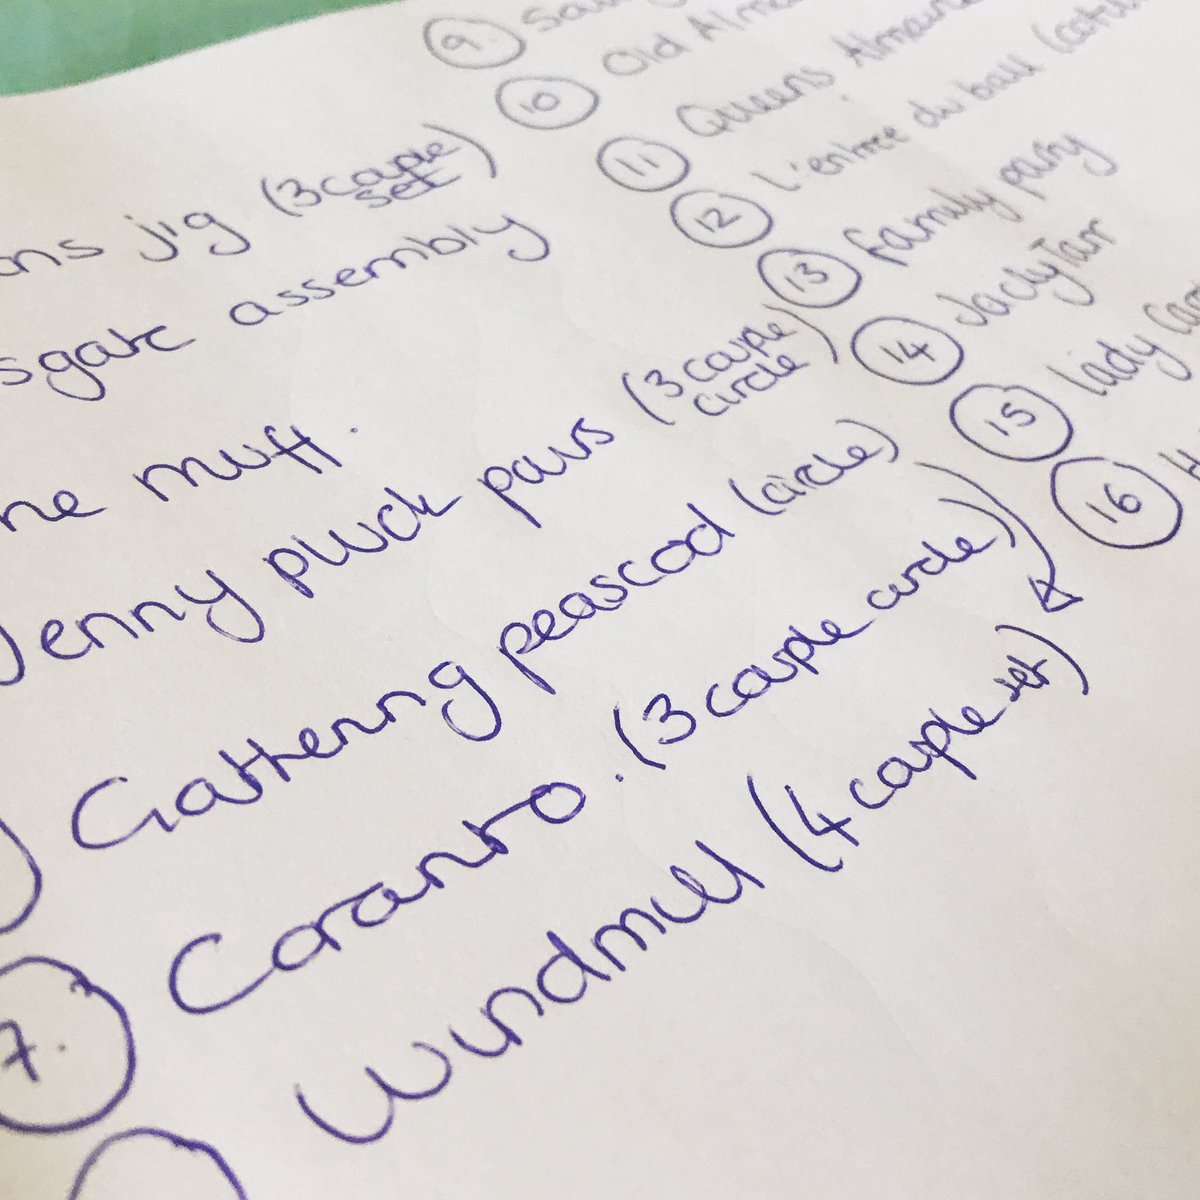 ons jig (3 couple set)
sgate assembly
he muff.
Jenny pluck pairs (3 couple circle)
Gathering peascod (circle)
7. Coranto. (3 couple circle)
Windmill (4 couple set)
9.
10 Old
11 Queens
12 L'entree du ball
13 family party
14 Jacky Tar
15 Lady
16